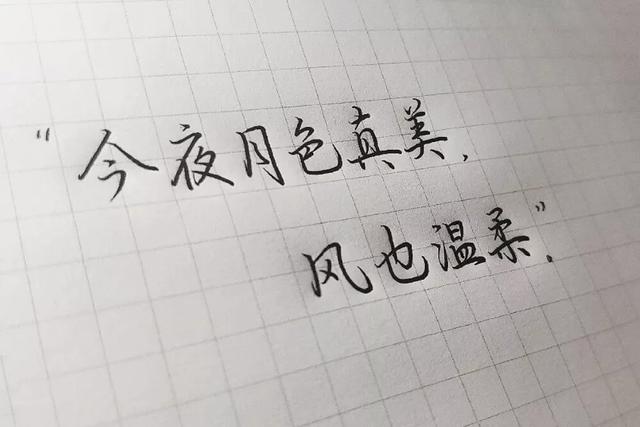 “今夜月色真美，
风也温柔”.